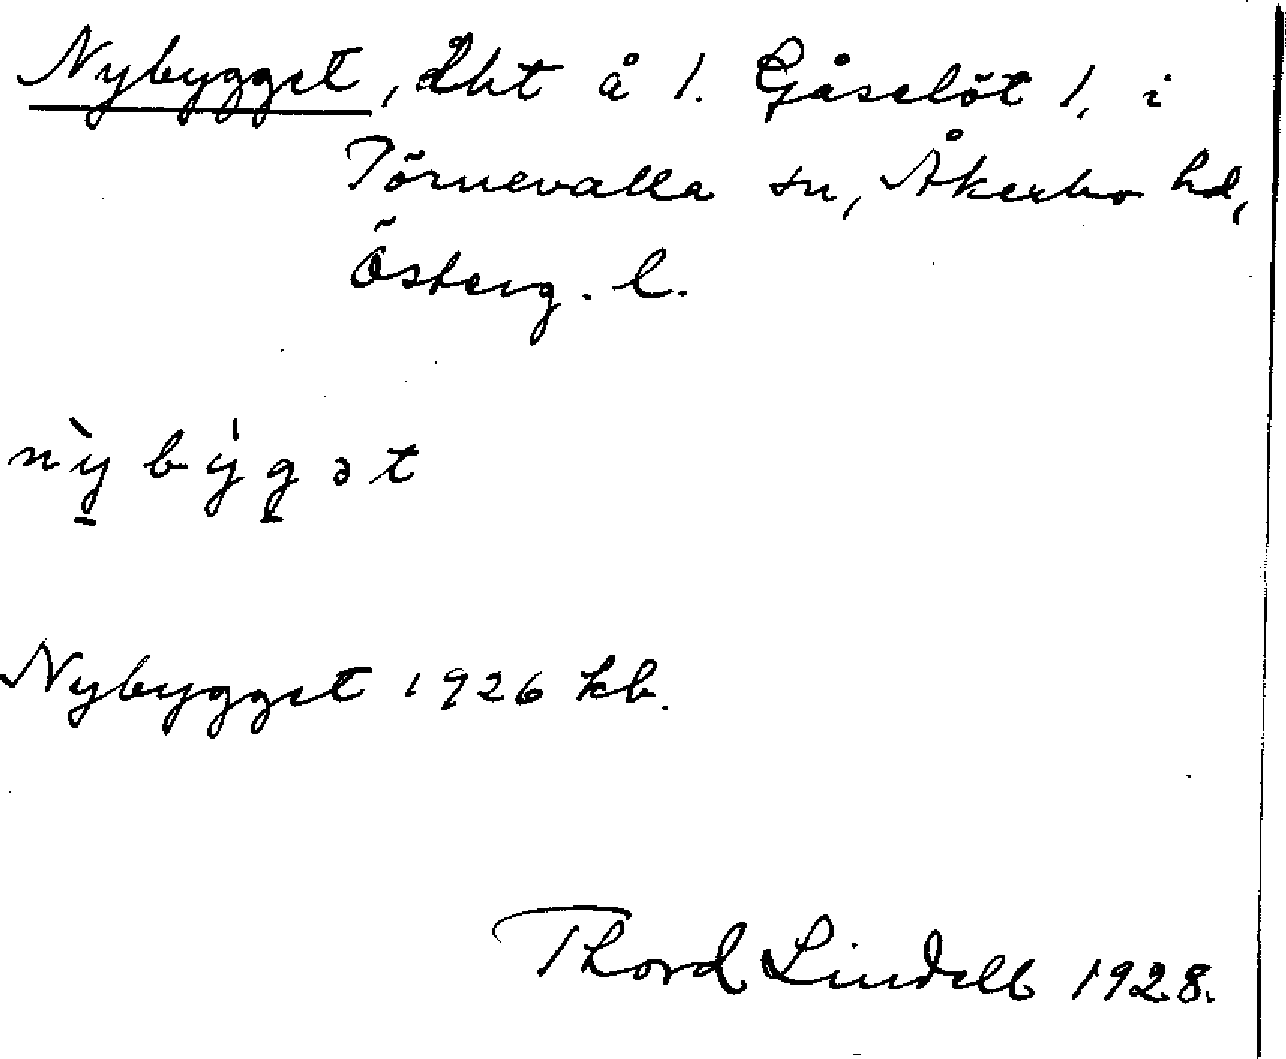 Nybygget, lht å 1. Gåselöt 1. i
Törnevalla sn, Åkerbo hd,
Österg. l.
nỳ bý g ə t
Nybygget 1926 kb.
Thord Lindell 1928.